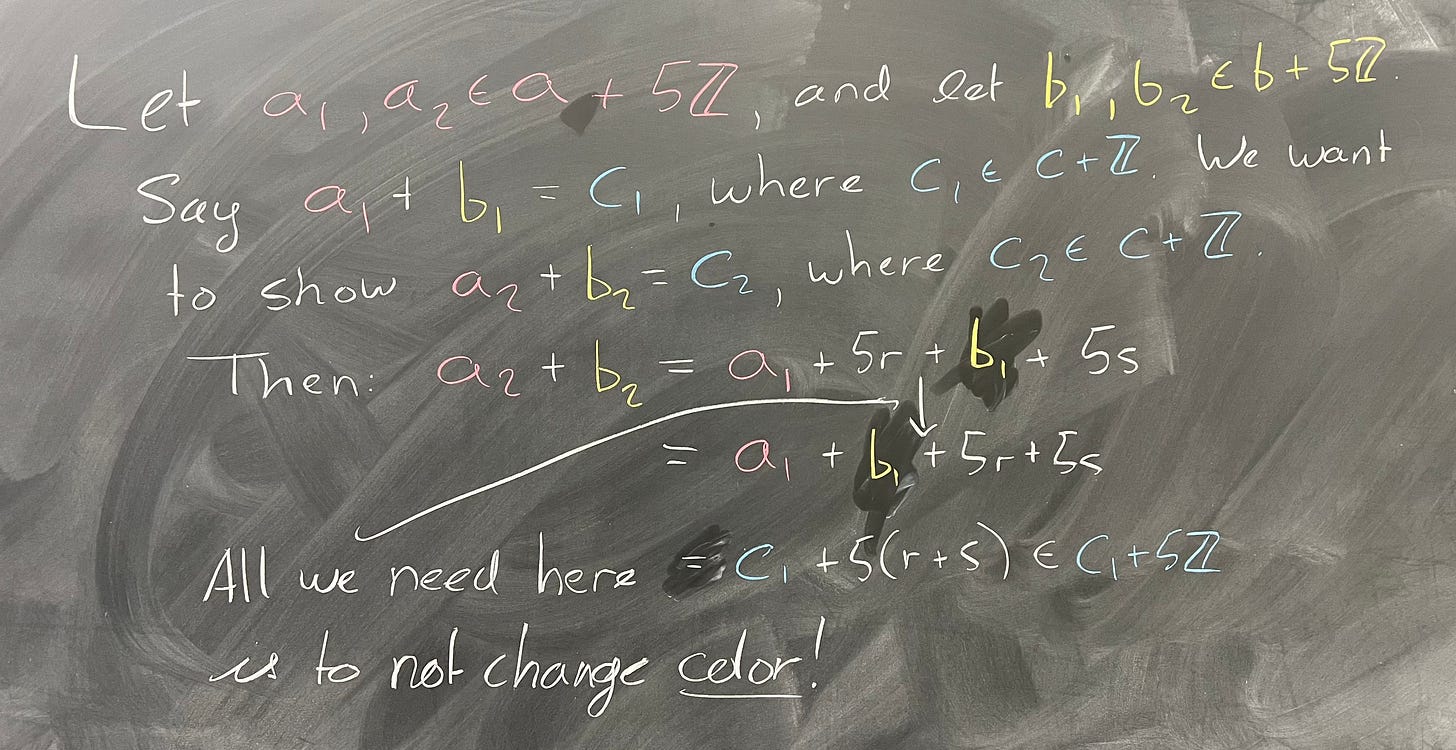 Let a₁, a₂ ∈ a + 5ℤ, and let b₁, b₂ ∈ b + 5ℤ.
Say a₁ + b₁ = c₁, where c₁ ∈ c + ℤ. We want
to show a₂ + b₂ = c₂, where c₂ ∈ c + ℤ.
Then: a₂ + b₂ = a₁ + 5r + b₁ + 5s
= a₁ + b₁ + 5r + 5s
All we need here = c₁ + 5(r + s) ∈ c₁ + 5ℤ
is to not change color!